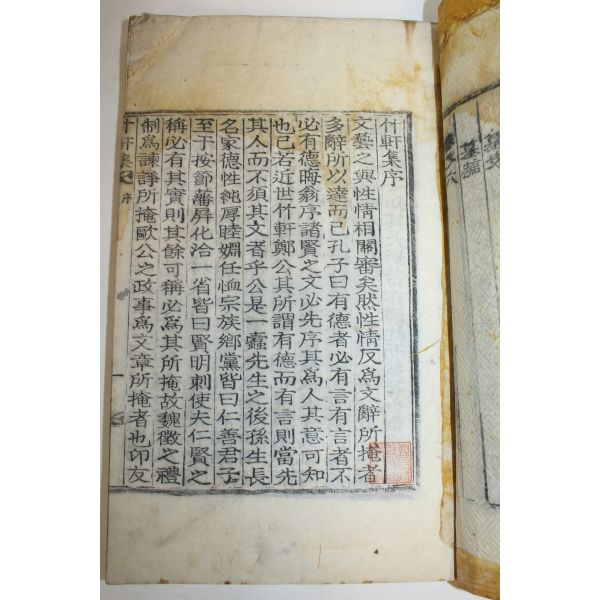 竹軒集序
文藝之與性情相關審矣然性情反爲文辭所掩者
多辭所以達而已孔子曰有德者必有言有言者不
必有德晦翁序諸賢之文必先序其爲人其意可知
也已若近世竹軒鄭公其所謂有德而有言則當先
其人而不須其文者乎公是一蠹先生之後孫生長
名家德性純厚睦婣任恤宗族鄕黨皆曰仁善君子
至于按節藩屛化洽一省皆曰賢明刺使夫仁賢之
稱必有其實則其餘可稱必爲其所掩故魏徵之禮
制爲諫諍所掩歐公之政事爲文章所掩者也卬友
竹軒集 序
墓誌
墓碣